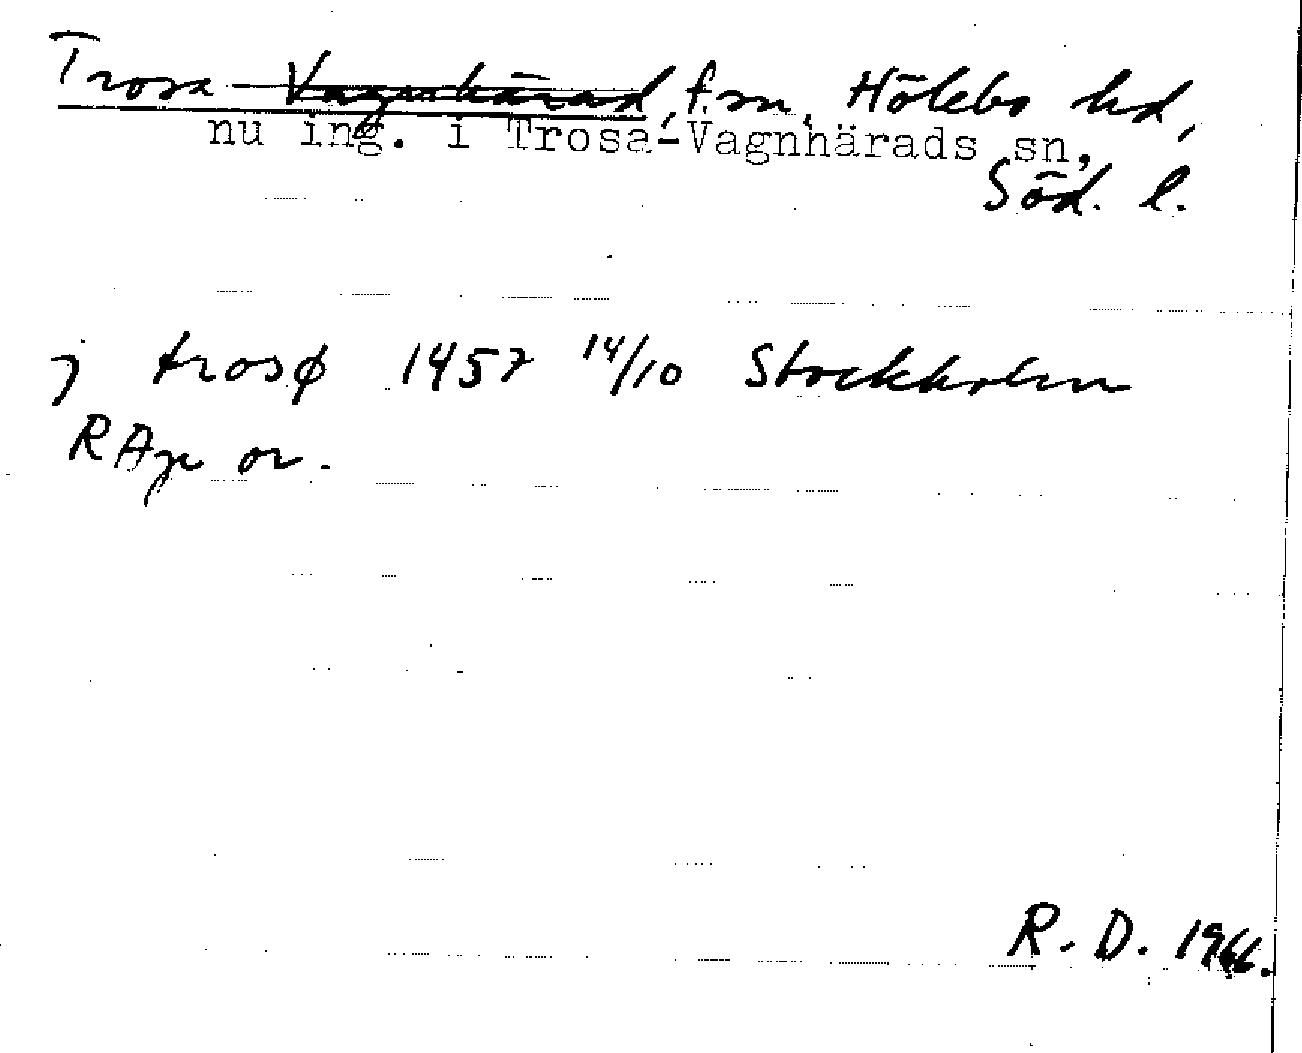 Trosa Vagnhärad, f. sn, Hölebo hd,
nu ing. i Trosa-Vagnhärads sn,
Söd. l.
j trosø 1457 14/10 Stockholm
RAp or.
R. D. 1966.